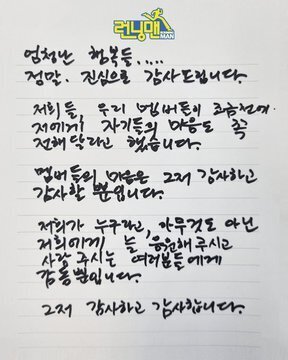 런닝맨
MAN
엄청난 행복들.....
정말. 진심으로 감사드립니다.
저희들, 우리 멤버들이 조금전에.
저에게 자기들의 마음도 꼭
전해달라고 했습니다.
멤버들의 마음은 그저 감사하고
감사할 뿐입니다.
저희가 누구라고, 아무것도 아닌
저희에게 늘 응원해 주시고
사랑 주시는 여러분들에게
감동뿐입니다.
그저 감사하고 감사합니다.